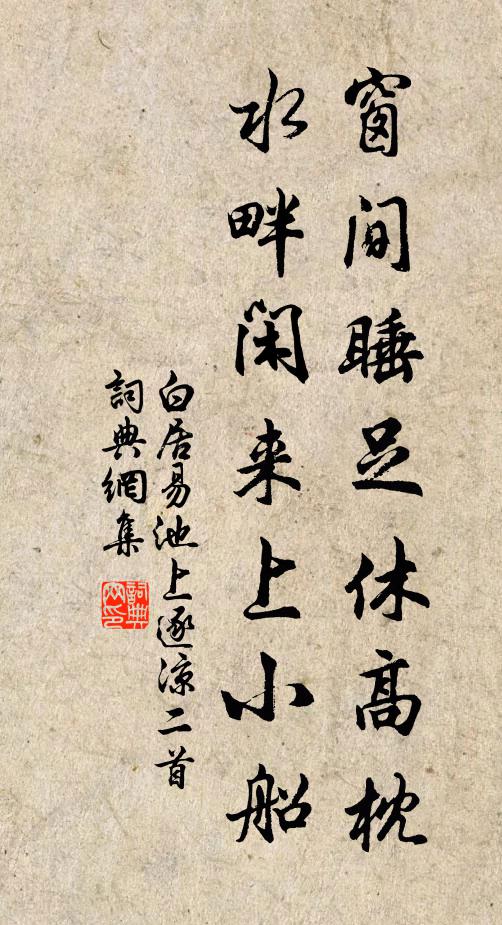 窗間睡足休高枕
水畔閑来上小船
白居易池上逐涼二首
詞典網集
詞典
网印